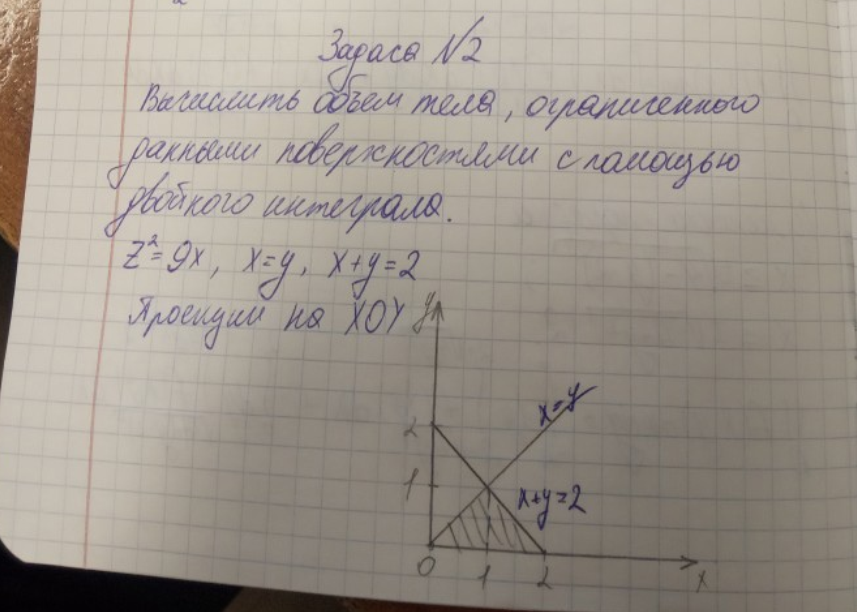 Задача №2
Вычислить объем тела, ограниченного
данными поверхностями с помощью
двойного интеграла.
z²=9x, x=y, x+y=2
Проекции на XOY
y
x=y
2
1
x+y=2
0 1 2 x